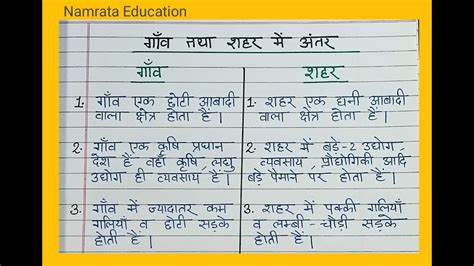 Namrata Education
गाँव तथा शहर में अंतर
गाँव
शहर
1. गाँव एक छोटी आबादी
वाला क्षेत्र होता है।
2. गाँव एक कृषि प्रधान
देश है वहाँ कृषि, लघु
उद्योग ही व्यवसाय हैं।
3. गाँव में ज्यादातर कम
गलियाँ व छोटी सड़के
होती हैं।
1. शहर एक घनी आबादी
वाला क्षेत्र होता है।
2. शहर में बड़े-2 उद्योग,
व्यवसाय, प्रौद्योगिकी आदि
बड़े पैमाने पर होता हैं।
3. शहर में पक्की गलियाँ
व लम्बी-चौड़ी सड़के
होती हैं।